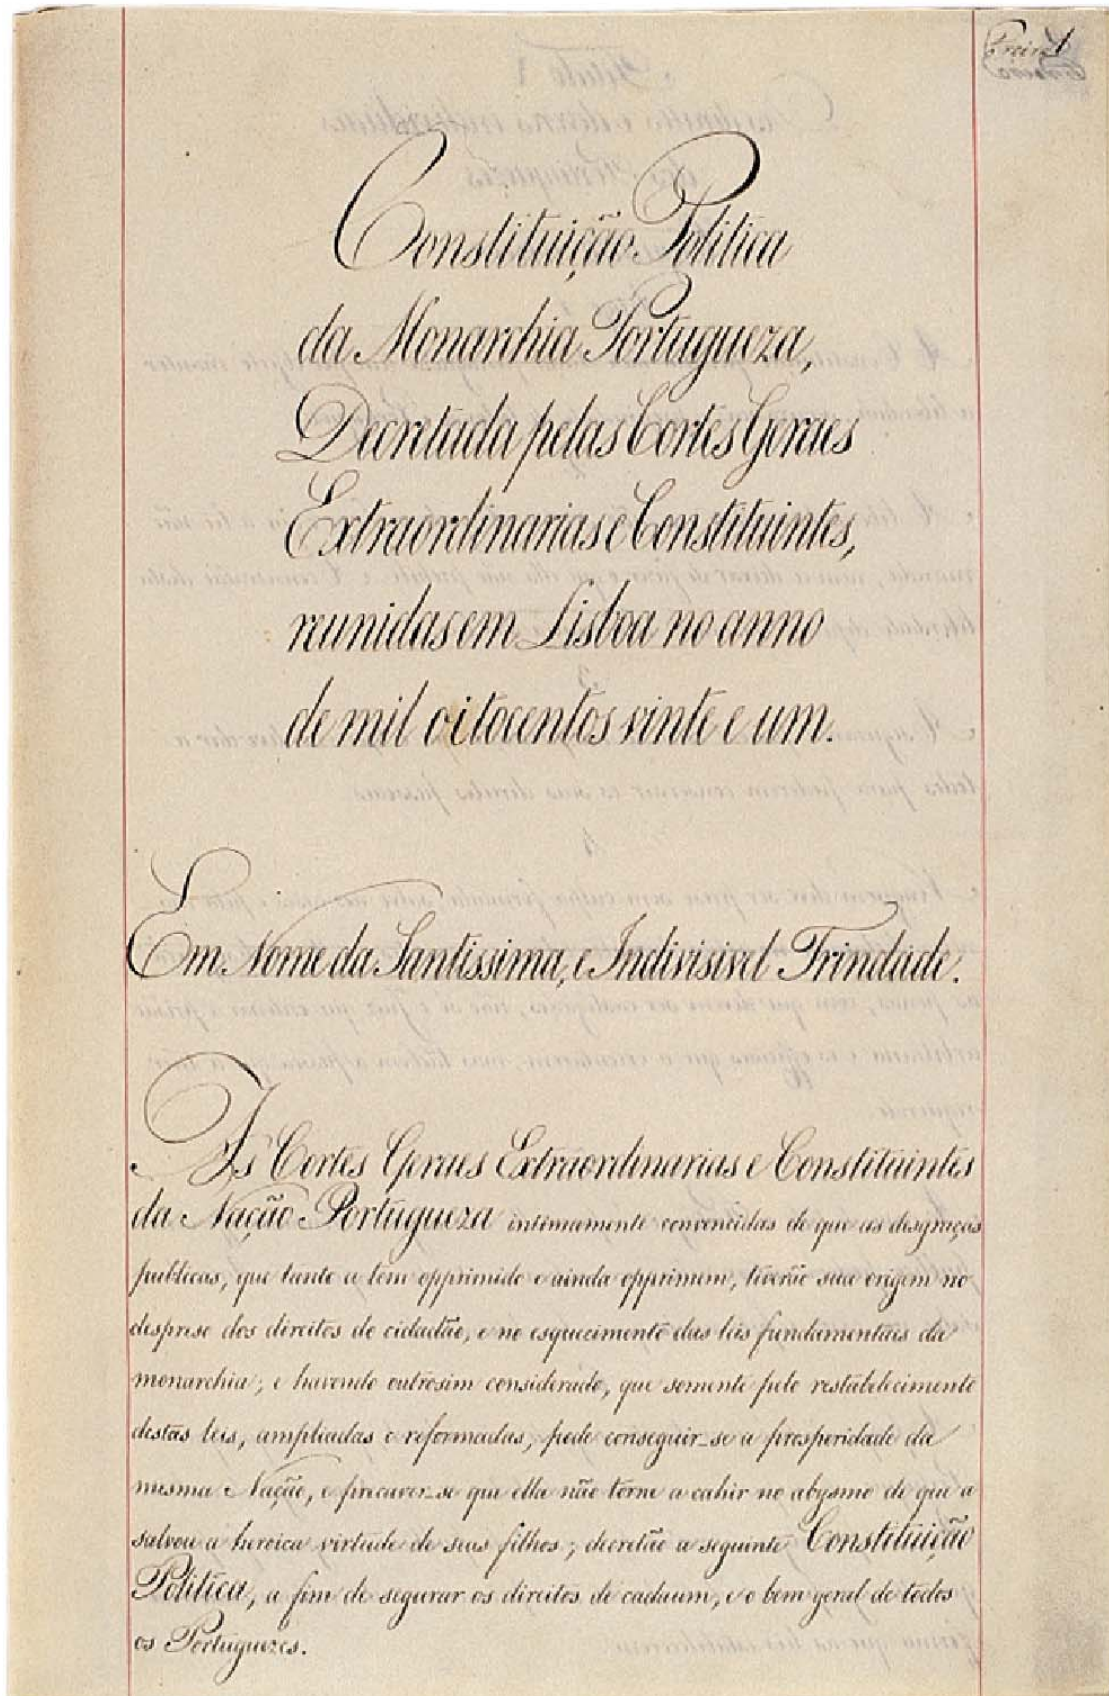 Freire
1
Constituição Politica
da Monarchia Portugueza,
Decretada pelas Cortes Geraes
Extraordinarias e Constituintes,
reunidas em Lisboa no anno
de mil oitocentos vinte e um.
Em Nome da Santissima, e Indivisivel Trindade.
As Cortes Geraes Extraordinarias e Constituintes
da Nação Portugueza intimamente convencidas de que as desgraças
publicas, que tanto a tem opprimido e ainda opprimem, tiverão sua origem no
despreso dos direitos do cidadão, e no esquecimento das leis fundamentais da
monarchia; e havendo outrosim considerado, que somente pelo restabelecimento
destas leis, ampliadas e reformadas, pode conseguir-se a prosperidade da
mesma Nação, e precaver-se que ella não torne a cahir no abysmo de que a
salvou a heroica virtude de seus filhos; decretão a seguinte Constituição
Politica, a fim de segurar os direitos de cadaum, e o bem geral de todos
os Portuguezes.